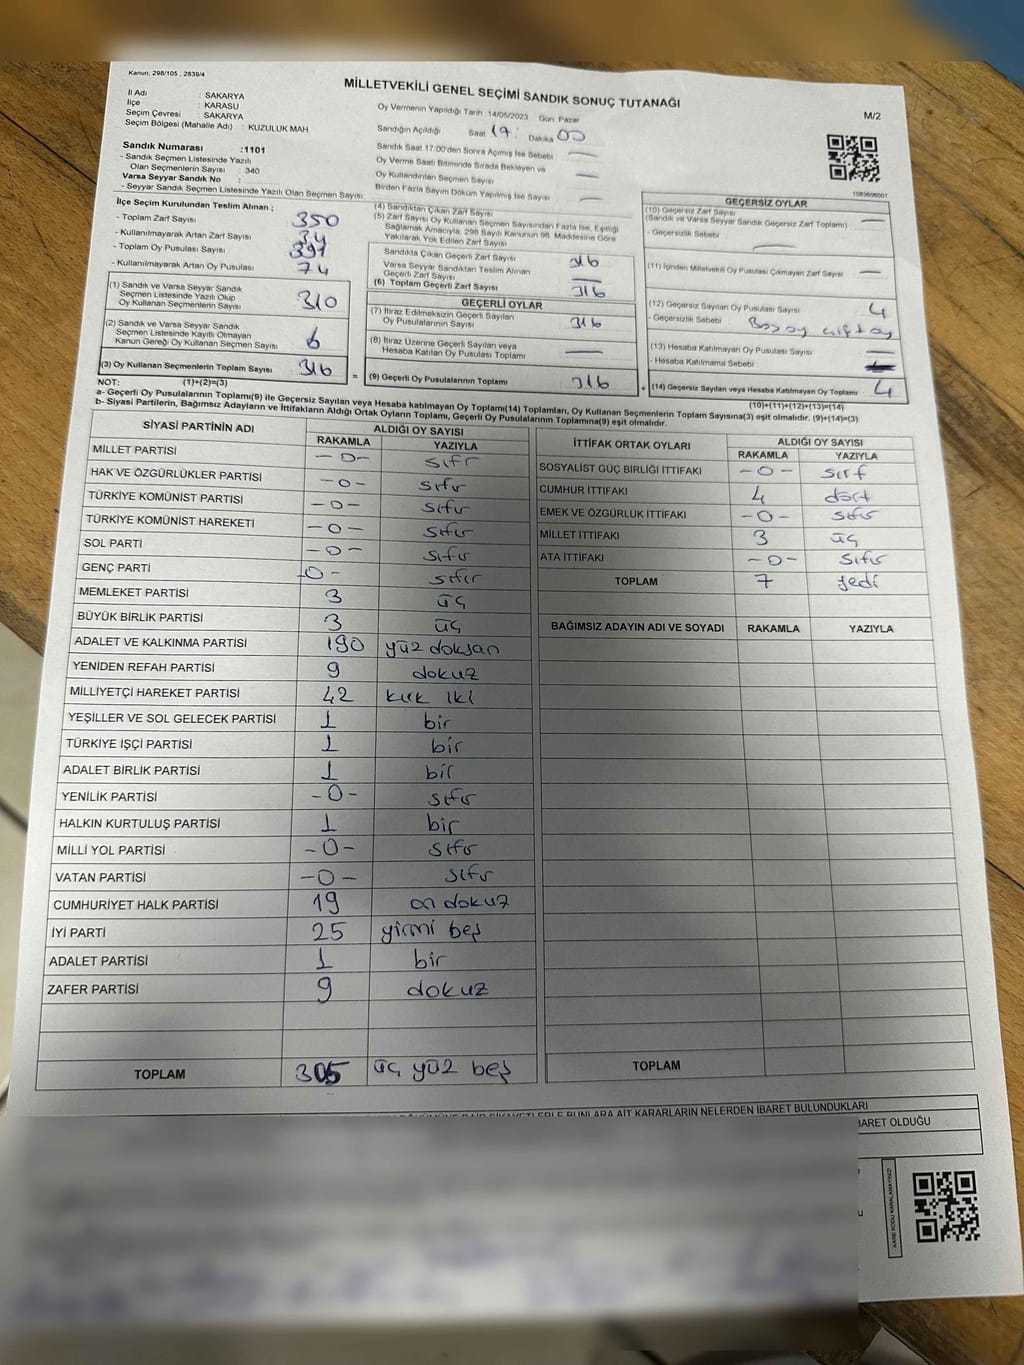 Kanun: 298/105 , 2839/4
MİLLETVEKİLİ GENEL SEÇİMİ SANDIK SONUÇ TUTANAĞI
M/2
İl Adı : SAKARYA
İlçe : KARASU
Seçim Çevresi : SAKARYA
Seçim Bölgesi (Mahalle Adı) : KUZULUK MAH.
Oy Vermenin Yapıldığı Tarih :14/05/2023 Gün: Pazar
Sandığın Açıldığı Saat 17: Dakika 00
Sandık Saat 17:00'den Sonra Açılmış İse Sebebi —
Oy Verme Saati Bitiminde Sırada Bekleyen ve
Oy Kullandırılan Seçmen Sayısı —
Birden Fazla Sayım Döküm Yapılmış İse Sayısı —
Sandık Numarası :1101
- Sandık Seçmen Listesinde Yazılı
Olan Seçmenlerin Sayısı : 340
Varsa Seyyar Sandık No :
- Seyyar Sandık Seçmen Listesinde Yazılı Olan Seçmen Sayısı:
İlçe Seçim Kurulundan Teslim Alınan ;
- Toplam Zarf Sayısı 350
- Kullanılmayarak Artan Zarf Sayısı 34
- Toplam Oy Pusulası Sayısı
- Kullanılmayarak Artan Oy Pusulası 74
(1) Sandık ve Varsa Seyyar Sandık
Seçmen Listesinde Yazılı Olup
Oy Kullanan Seçmenlerin Sayısı 310
(2) Sandık ve Varsa Seyyar Sandık
Seçmen Listesinde Kayıtlı Olmayan
Kanun Gereği Oy Kullanan Seçmen Sayısı 6
(3) Oy Kullanan Seçmenlerin Toplam Sayısı 316
(4) Sandıktan Çıkan Zarf Sayısı
(5) Zarf Sayısı Oy Kullanan Seçmen Sayısından Fazla İse, Eşitliği
Sağlamak Amacıyla, 298 Sayılı Kanunun 98. Maddesine Göre
Yakılarak Yok Edilen Zarf Sayısı
Sandıkta Çıkan Geçerli Zarf Sayısı 316
Varsa Seyyar Sandıktan Teslim Alınan
Geçerli Zarf Sayısı —
(6) Toplam Geçerli Zarf Sayısı 316
GEÇERLİ OYLAR
(7) İtiraz Edilmeksizin Geçerli Sayılan
Oy Pusulalarının Sayısı 316
(8) İtiraz Üzerine Geçerli Sayılan veya
Hesaba Katılan Oy Pusulası Toplamı —
= (9) Geçerli Oy Pusulalarının Toplamı 316
1083606001
GEÇERSİZ OYLAR
(10) Geçersiz Zarf Sayısı
(Sandık ve Varsa Seyyar Sandık Geçersiz Zarf Toplamı) —
- Geçersizlik Sebebi —
(11) İçinden Milletvekili Oy Pusulası Çıkmayan Zarf Sayısı —
(12) Geçersiz Sayılan Oy Pusulası Sayısı 4
- Geçersizlik Sebebi Boş oy çift oy
(13) Hesaba Katılmayan Oy Pusulası Sayısı —
- Hesaba Katılmama Sebebi —
+ (14) Geçersiz Sayılan veya Hesaba Katılmayan Oy Toplamı 4
NOT: (1)+(2)=(3) (10)+(11)+(12)+(13)=(14)
a- Geçerli Oy Pusulalarının Toplamı(9) ile Geçersiz Sayılan veya Hesaba katılmayan Oy Toplamı(14) Toplamları, Oy Kullanan Seçmenlerin Toplam Sayısına(3) eşit olmalıdır. (9)+(14)=(3)
b- Siyasi Partilerin, Bağımsız Adayların ve İttifakların Aldığı Ortak Oyların Toplamı, Geçerli Oy Pusulalarının Toplamına(9) eşit olmalıdır.
SİYASİ PARTİNİN ADI ALDIĞI OY SAYISI
RAKAMLA YAZIYLA
MİLLET PARTİSİ -0- sıfır
HAK VE ÖZGÜRLÜKLER PARTİSİ -0- sıfır
TÜRKİYE KOMÜNİST PARTİSİ -0- sıfır
TÜRKİYE KOMÜNİST HAREKETİ -0- sıfır
SOL PARTİ -0- sıfır
GENÇ PARTİ -0- sıfır
MEMLEKET PARTİSİ 3 üç
BÜYÜK BİRLİK PARTİSİ 3 üç
ADALET VE KALKINMA PARTİSİ 190 yüz doksan
YENİDEN REFAH PARTİSİ 9 dokuz
MİLLİYETÇİ HAREKET PARTİSİ 42 kırk iki
YEŞİLLER VE SOL GELECEK PARTİSİ 1 bir
TÜRKİYE İŞÇİ PARTİSİ 1 bir
ADALET BİRLİK PARTİSİ 1 bir
YENİLİK PARTİSİ -0- sıfır
HALKIN KURTULUŞ PARTİSİ 1 bir
MİLLİ YOL PARTİSİ -0- sıfır
VATAN PARTİSİ -0- sıfır
CUMHURİYET HALK PARTİSİ 19 on dokuz
İYİ PARTİ 25 yirmi beş
ADALET PARTİSİ 1 bir
ZAFER PARTİSİ 9 dokuz
TOPLAM 305 üç yüz beş
İTTİFAK ORTAK OYLARI ALDIĞI OY SAYISI
RAKAMLA YAZIYLA
SOSYALİST GÜÇ BİRLİĞİ İTTİFAKI -0- sırf
CUMHUR İTTİFAKI 4 dört
EMEK VE ÖZGÜRLÜK İTTİFAKI -0- sıfır
MİLLET İTTİFAKI 3 üç
ATA İTTİFAKI -0- sıfır
TOPLAM 7 yedi
BAĞIMSIZ ADAYIN ADI VE SOYADI RAKAMLA YAZIYLA
TOPLAM
DÖKÜMÜNE DAİR ŞİKAYETLERLE BUNLARA AİT KARARLARIN NELERDEN İBARET BULUNDUKLARI
İBARET OLDUĞU
KARE KODU KARALAMAYINIZ!